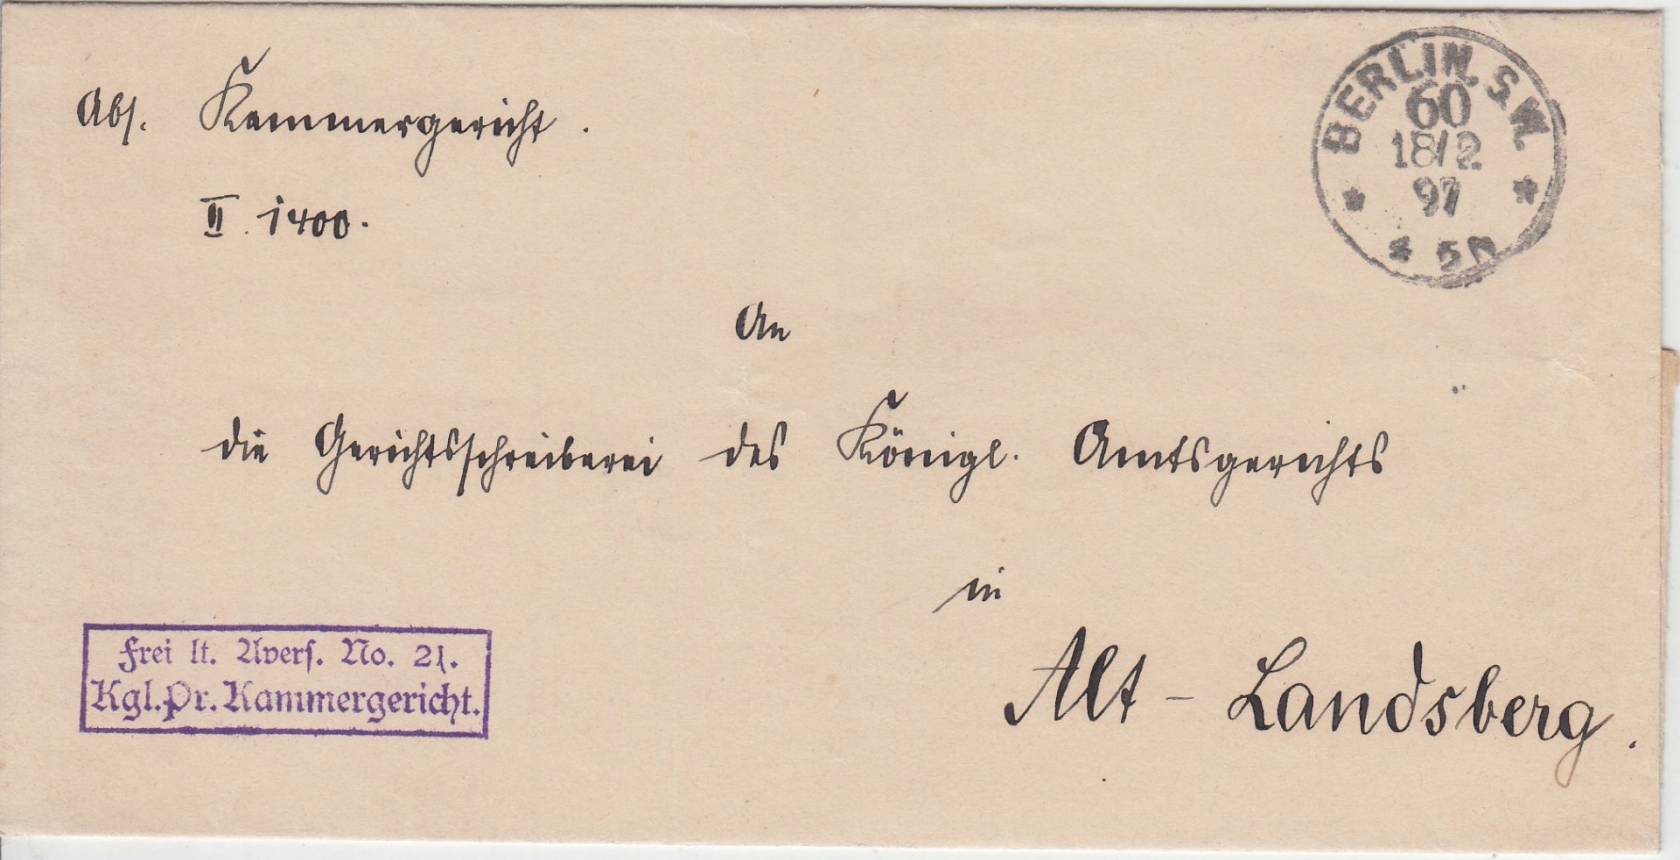 Abs. Kammergericht.
II. 1400.
BERLIN. S.W.
60
18/2
97
* *
5 N
An
die Gerichtsschreiberei des Königl. Amtsgerichts
in
Alt-Landsberg.
Frei lt. Avers. No. 21.
Kgl. Pr. Kammergericht.